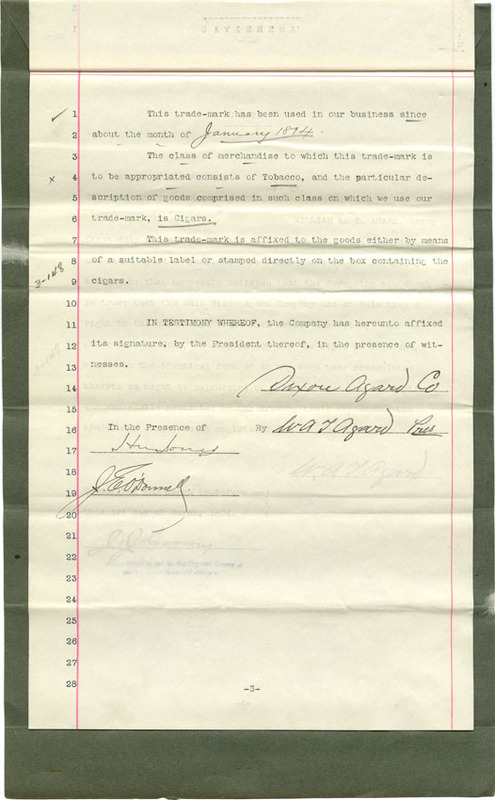 1 This trade-mark has been used in our business since
2 about the month of January 1894.
3 The class of merchandise to which this trade-mark is
x 4 to be appropriated consists of Tobacco, and the particular de-
5 scription of goods comprised in such class on which we use our
6 trade-mark, is Cigars.
7 This trade-mark is affixed to the goods either by means
8 of a suitable label or stamped directly on the box containing the
9 cigars.
10
11 IN TESTIMONY WHEREOF, the Company has hereunto affixed
12 its signature, by the President thereof, in the presence of wit-
13 nesses.
14 Dixon Agard Co
15
16 In the Presence of By W A T Agard Pres
17
18
19 J. E. O'Donnell
20
21
22
23
24
25
26
27
28 -3-